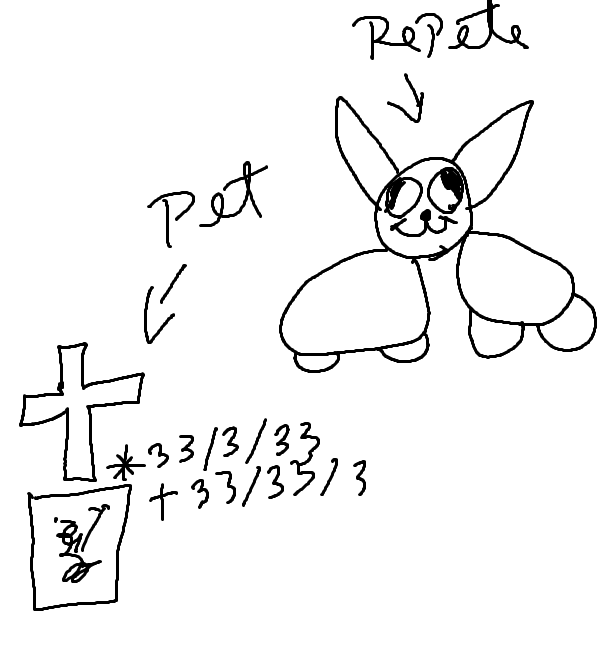 RePete
Pet
*33/3/33
+33/35/3